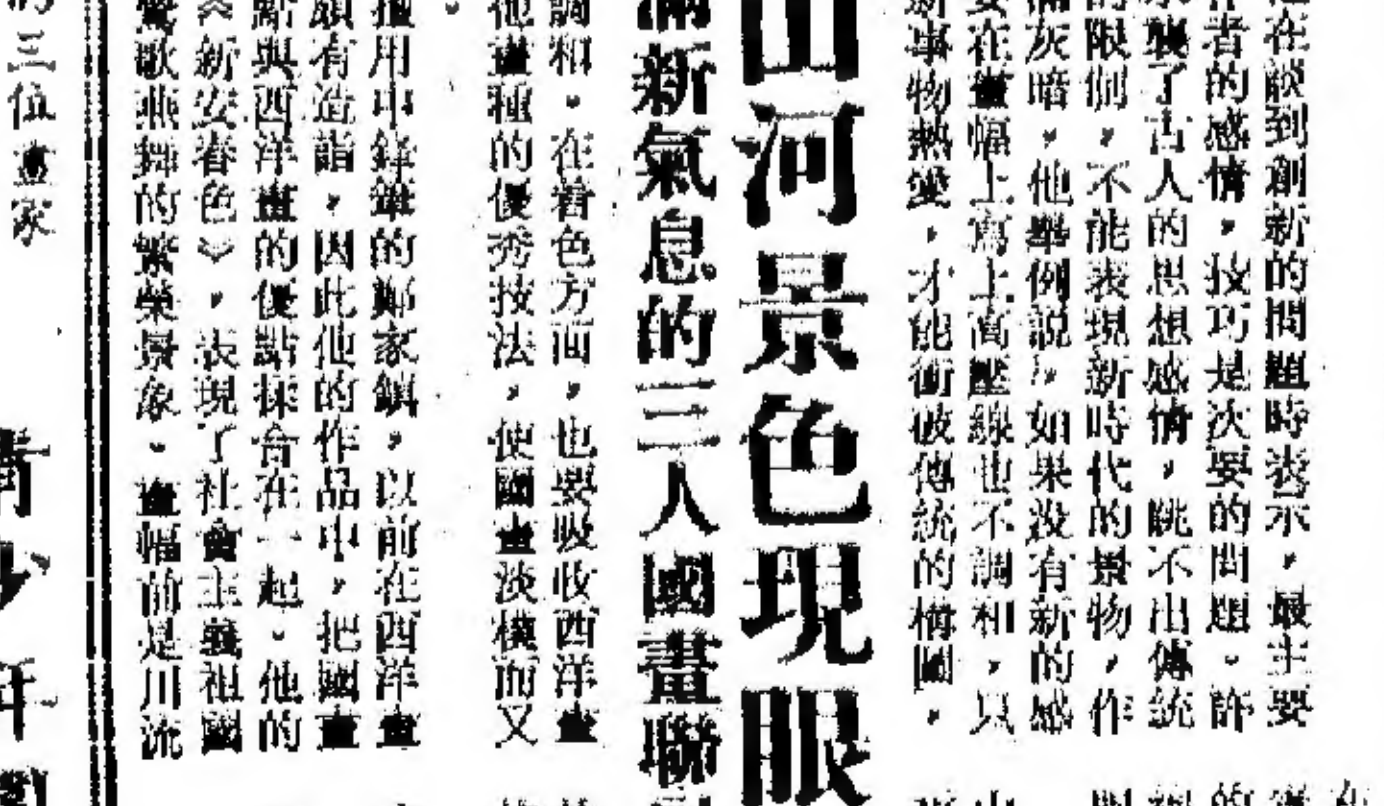 在談到創新的問題時表示，最主要
作者的感情，技巧是次要的問題。許
襲了古人的思想感情，跳不出傳統
的限制，不能表現新時代的景物，作
滿灰暗，他舉例説，如果没有新的感
要在畫幅上寫上高壓線也不調和，只
新事物熱愛，才能衝破傳統的構圖。
山河景色現眼
滿新氣息的三人國畫聯
調和。在着色方面，也要吸收西洋畫
他畫種的優秀技法，使國畫淡樸而又
擅用中鋒筆的鄭家鎮，以前在西洋畫
頗有造詣，因此他的作品中，把國畫
點與西洋畫的優點揉合在一起。他的
《新安春色》，表現了社會主義祖國
鶯歌燕舞的繁榮景象。畫幅前是川流
三位畫家
青少年